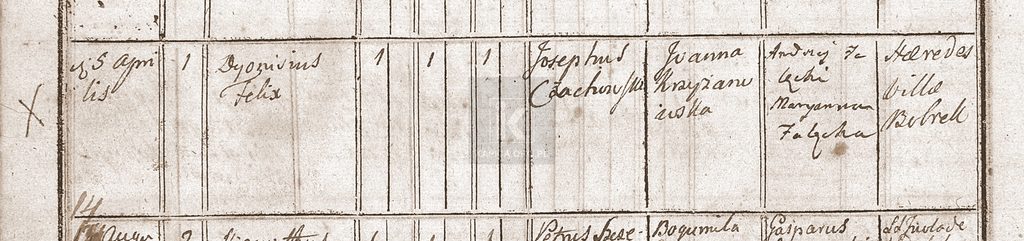 5 Apri
lis
1
Dyonisius
Felix
1
1
1
Josephus
Czachowski
Joanna
Krzyżano
wska
Andrzej Za
łęcki
Maryanna
Załęcka
Hæredes
villæ
Bobrek
X
14
2
Petrus
Bogumila
Gasparus